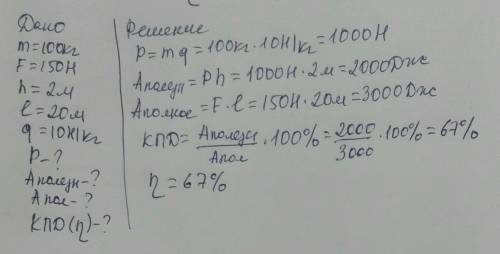 Дано
m=100кг
F=150Н
h=2м
ℓ=20м
g=10Н/кг
P-?
Aполезн-?
Aпол-?
КПД(η)-?
Решение
P=mg=100кг·10Н/кг=1000Н
Aполезн=Ph=1000Н·2м=2000Дж
Aполное=F·ℓ=150Н·20м=3000Дж
КПД=Aполезн/Aпол·100%=2000/3000·100%=67%
η=67%